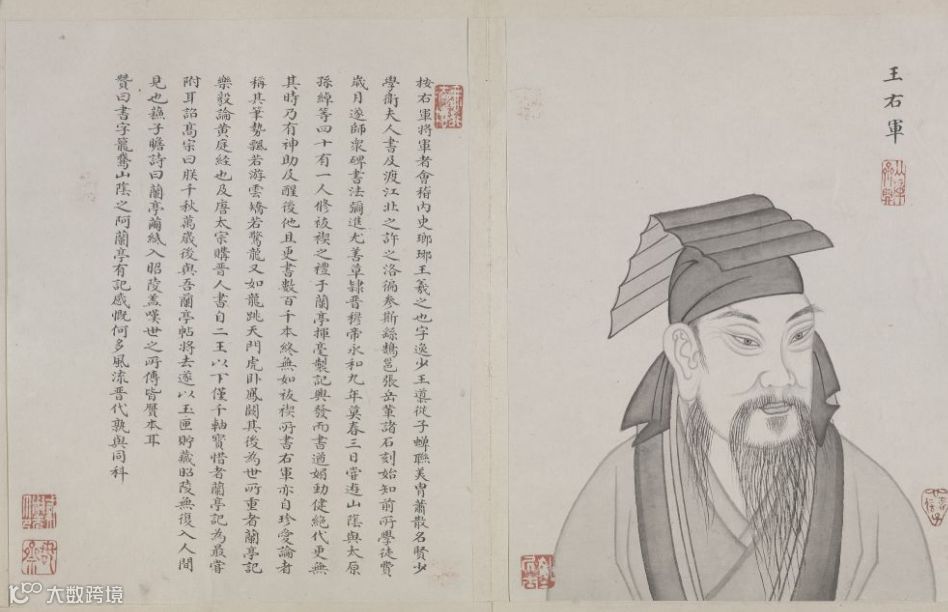 王右軍
按右軍將軍者會稽內史瑯琊王羲之也字逸少王導從子蟬聯美冑蕭散名賢少
學衛夫人書及渡江北之許之洛徧參斯繇鵠邕張岳諸石刻始知前所學徒費
歲月遂師衆碑書法彌進尤善草隸晉穆帝永和九年莫春三日嘗遊山陰與太原
孫綽等四十有一人修祓禊之禮于蘭亭揮毫製記興發而書遒媚勁健絕代更無
其時乃有神助及醒後他且更書數百千本終無如祓禊所書右軍亦自珍愛論者
稱其筆勢飄若游雲矯若驚龍又如龍跳天門虎卧鳳闕其後為世所重者蘭亭記
樂毅論黃庭經也及唐太宗購晉人書自二王以下僅千軸寶惜者蘭亭記為最嘗
附耳詔高宗曰朕千秋萬歲後與吾蘭亭帖將去遂以玉匣貯藏昭陵無復入人間
見也蘇子瞻詩曰蘭亭繭紙入昭陵盖嘆世之所傳皆贗本耳
贊曰書字籠鵞山陰之阿蘭亭有記感慨何多風流晉代孰與同科
大数跨境